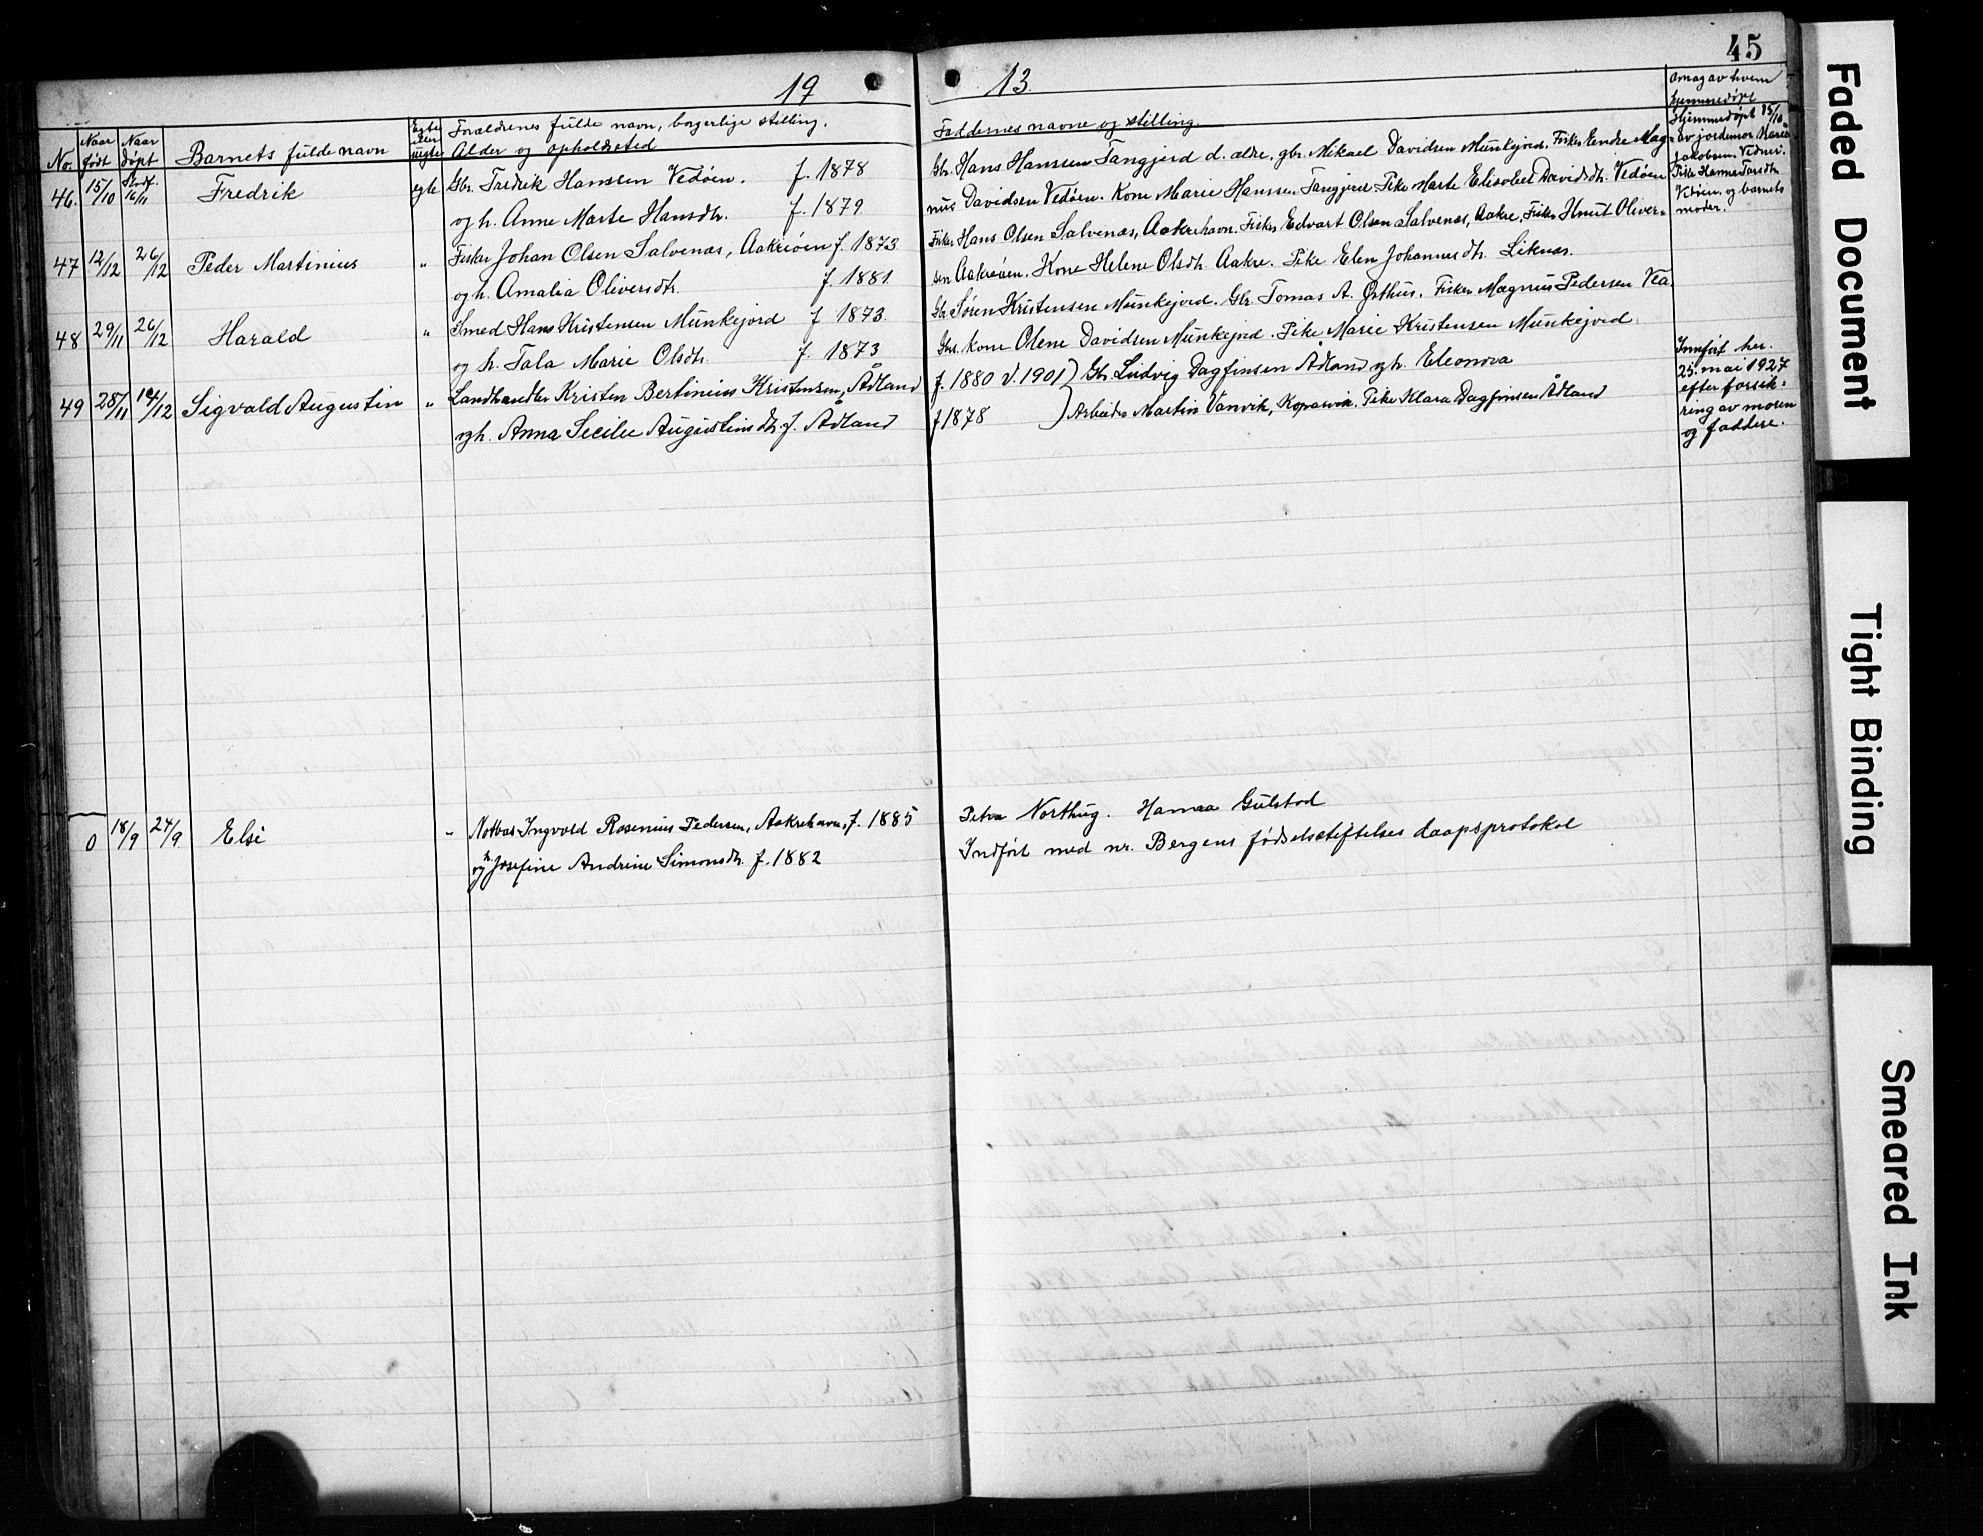 45
19 13.
No. Naar født Naar døpt Barnets fulde navn Egte eller uegte Forældrenes fulde navn, borgerlige stilling. Alder og opholdssted Faddernes navne og stilling. Omsag av hvem hjemmedøpt
46. 15/10 Stadf. 16/11 Fredrik egte Gbr. Fredrik Hansen Vedøen. f. 1878 Gbr. Hans Hanssen Tangjerd d. ældre, gbr. Mikael Davidsen Munkejord. Fisker Endre Mag- Hjemmedøpt 15/10
og h. Anne Marte Hansdtr. f. 1879 nus Davidsen Vedøen. Kone Marie Hanssen Tangjerd. Pike Marte Elisabet Davidsdtr. Vedøen av jordemor Maren Jakobsen. Vedøen. Pike Hanna Vedøen. og barnets moder.
47 12/12 26/12 Peder Martinius " Fisker Johan Olsen Salvenæs, Aakreøen f. 1873 Fisker Hans Olsen Salvenæs, Aakrehavn. Fisker Edvart Olsen Salvenæs, Aakre, Fisker Knut Oliver-
og h. Amalia Oliversdtr. f. 1881 sen Aakreøen. Kone Helene Olsdtr. Aakre. Pike Elen Johannesdtr. Liknæs.
48 29/11 26/12 Harald " Smed Hans Kristensen Munkejord f 1873 Gbr. Søren Kristensen Munkejord. Gbr. Tomas A. Østhus. Fisker Magnus Pedersen Vea
og h. Tala Marie Olsdtr. f. 1873 Gbr. kone Olene Davidsen Munkejord. Pike Marie Kristensen Munkejord
49 28/11 14/12 Sigvald Augustin " Landhandler Kristen Bertinius Kristensen, Ådland f. 1880 d. 1901) Gbr. Ludvig Dagfinsen Ådland og h. Eleonora
og h. Anna Secilie Augustinsdtr. f. Ådland f 1878 ) Arbeider Martin Vanvik, Kopervik. Pike Klara Dagfinsen Ådland
Innført her.
25. mai 1927
efter forsik-
ring av moren
og faddere.
0 18/9 24/9 Else " Notbas Ingvald Rosenius Pedersen, Aakrehavn, f. 1885 Petra Northug. Hanna Gulstad
og h. Josefine Andrine Simonsdtr. f. 1882 Indført med nr. Bergens fødselsstiftelses daapsprotokol
Faded Document
Tight Binding
Smeared Ink